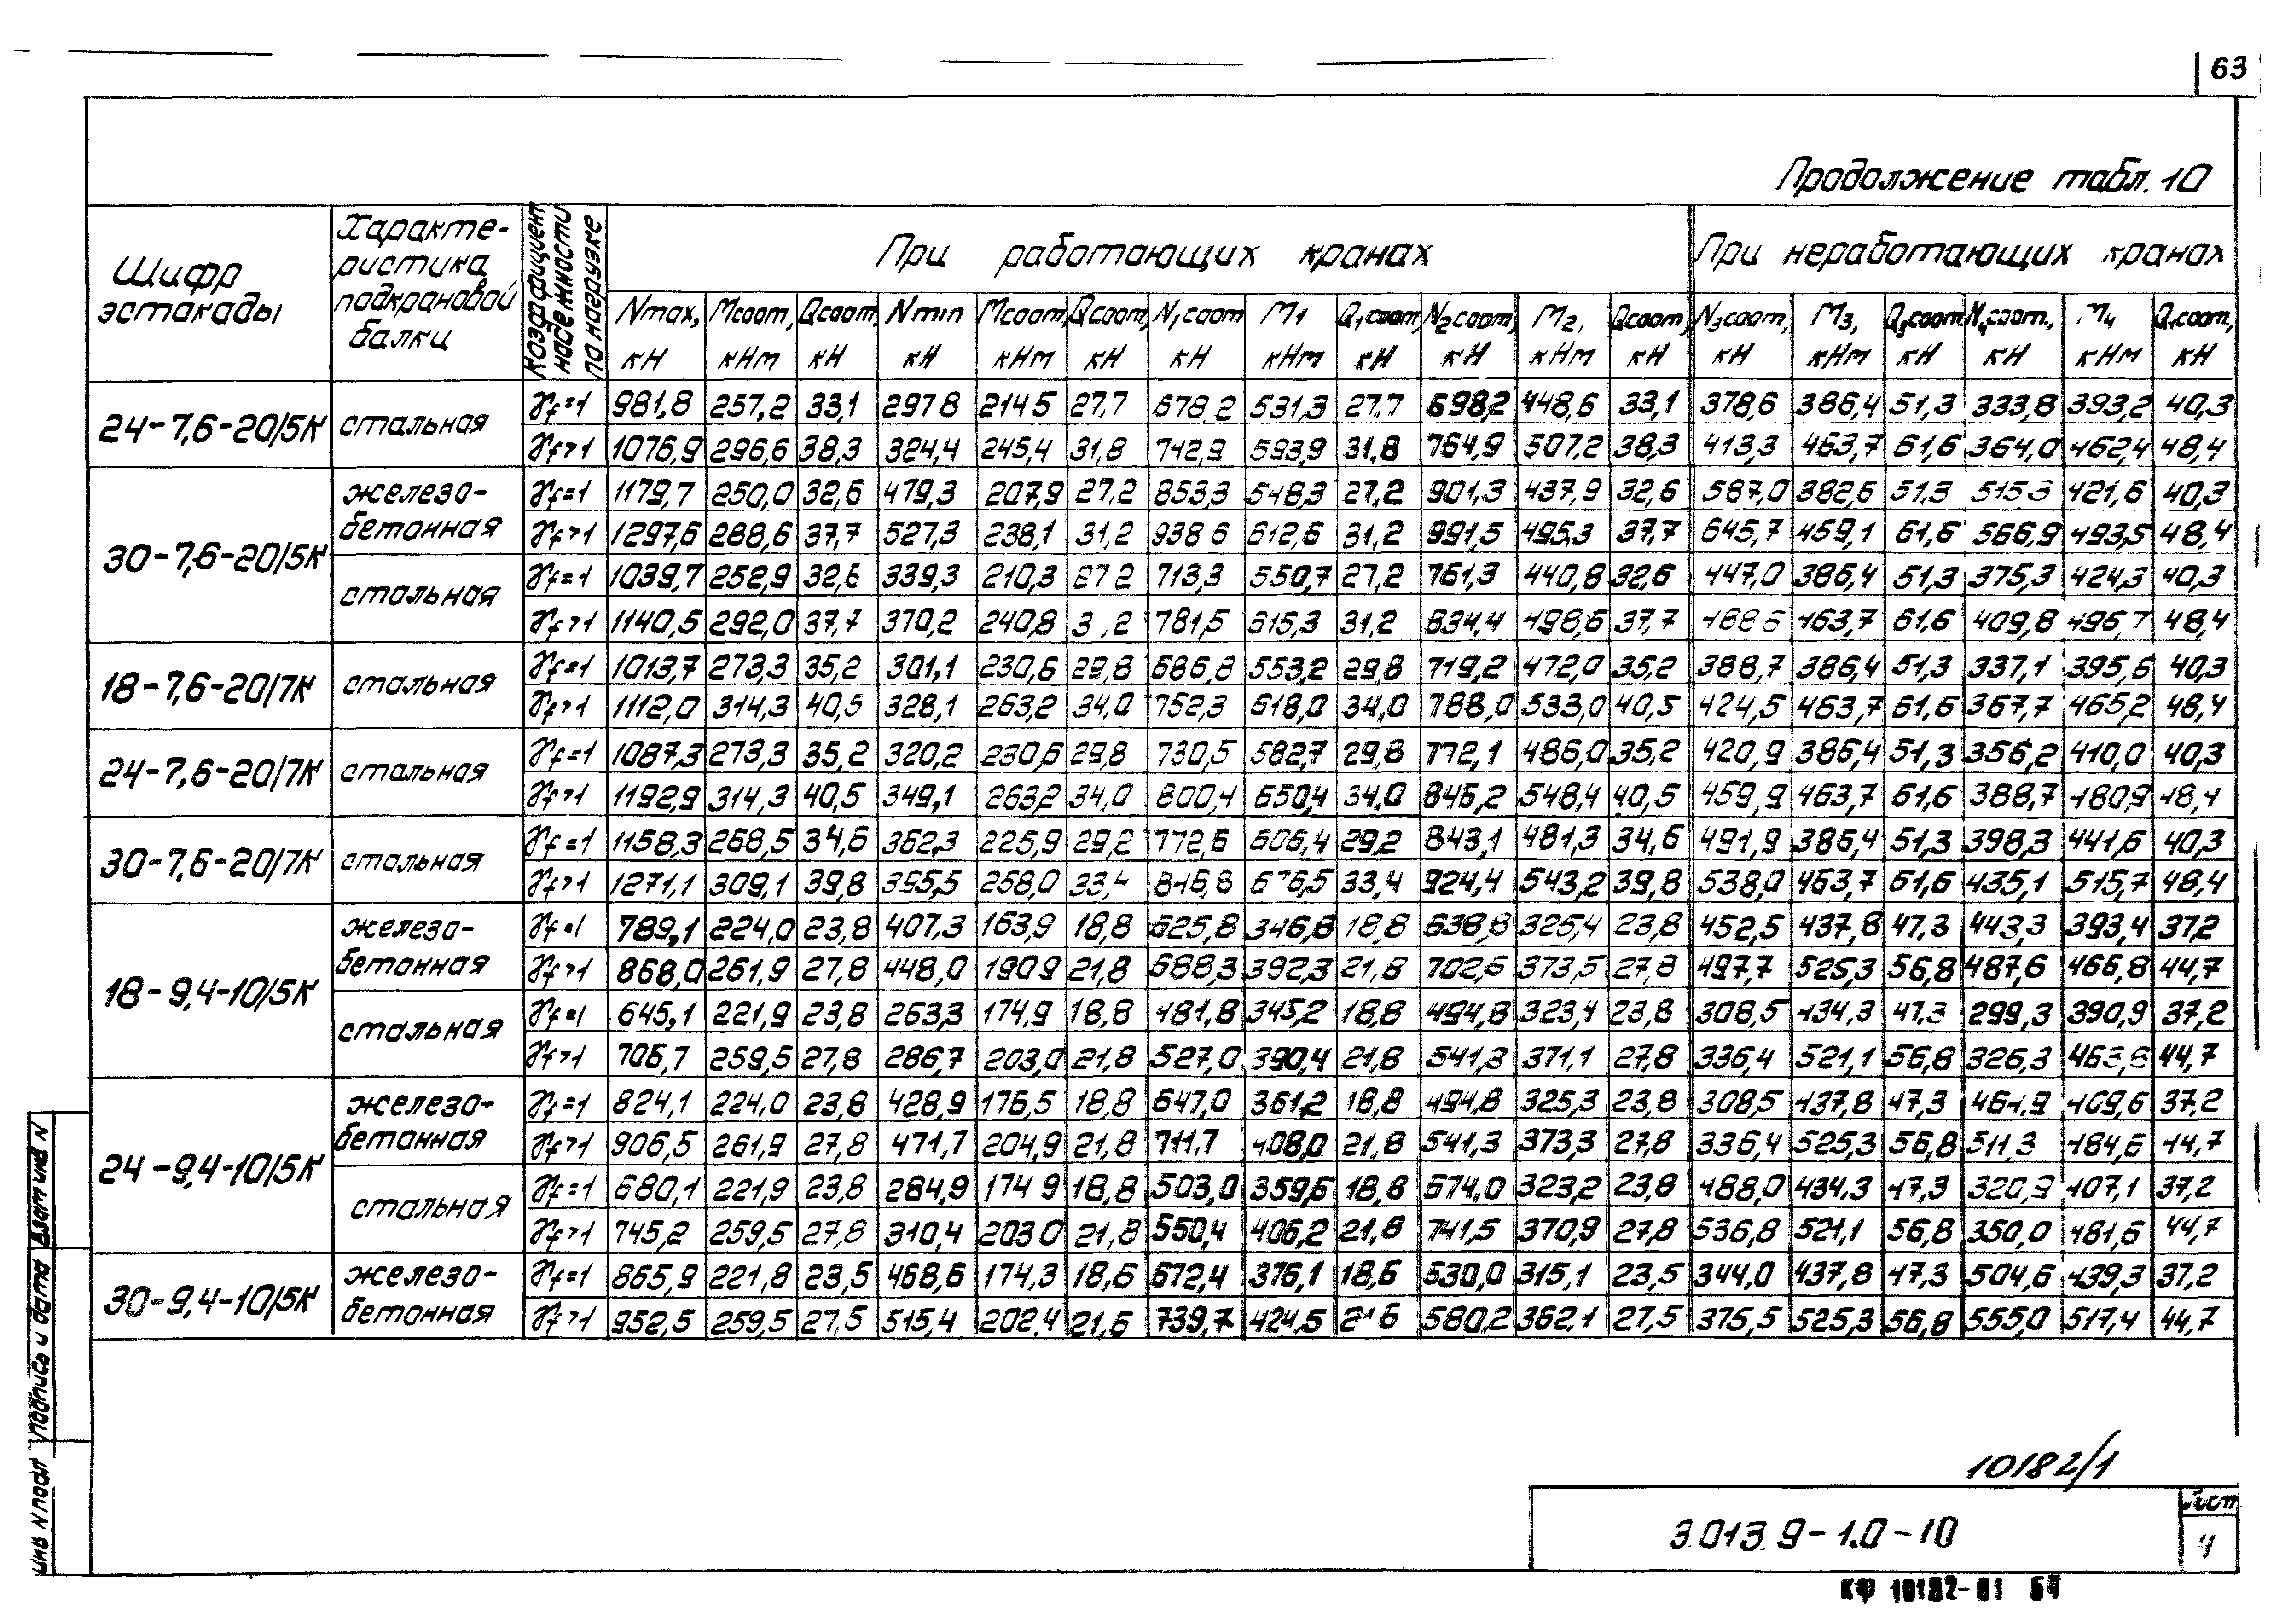 63
Продолжение табл. 10
Шифр эстакады
Характеристика подкрановой балки
Коэффициент надежности по нагрузке
При работающих кранах
При неработающих кранах
Nmax, кН Mсоот, кНм Qсоот, кН Nmin кН Mсоот, кНм Qсоот, кН N1соот кН M1 кНм Q1соот, кН N2соот, кН M2, кНм Qсоот, кН N3соот, кН M3, кНм Q3соот кН N4соот., кН M4 кНм Q4соот, кН
24-7,6-20/5К стальная γf=1 981,8 257,2 33,1 297 8 214 5 27,7 678,2 531,3 27,7 698,2 448,6 33,1 378,6 386,4 51,3 333,8 393,2 40,3
γf>1 1076,9 296,6 38,3 324,4 245,4 31,8 742,9 593,9 31,8 764,9 507,2 38,3 413,3 463,7 61,6 364,0 462,4 48,4
30-7,6-20/5К железо-бетонная γf=1 1179,7 250,0 32,6 479,3 207,9 27,2 853,3 548,3 27,2 901,3 437,9 32,6 587,0 382,6 51,3 515,3 421,6 40,3
γf>1 1297,6 288,6 37,7 527,3 238,1 31,2 938 6 612,6 31,2 991,5 495,3 37,7 645,7 459,1 61,6 566,9 493,5 48,4
стальная γf=1 1039,7 252,9 32,6 339,3 210,3 27 2 713,3 550,7 27,2 761,3 440,8 32,6 447,0 386,4 51,3 375,3 424,3 40,3
γf>1 1140,5 292,0 37,7 370,2 240,8 3 ,2 781,5 615,3 31,2 834,4 498,6 37,7 488 6 463,7 61,6 409,8 496,7 48,4
18-7,6-20/7К стальная γf=1 1013,7 273,3 35,2 301,1 230,6 29,8 686,8 553,2 29,8 719,2 472,0 35,2 388,7 386,4 51,3 337,1 395,6 40,3
γf>1 1112,0 314,3 40,5 328,1 263,2 34,0 752,3 618,0 34,0 788,0 533,0 40,5 424,5 463,7 61,6 367,7 465,2 48,4
24-7,6-20/7К стальная γf=1 1087,3 273,3 35,2 320,2 230,6 29,8 730,5 582,7 29,8 772,1 486,0 35,2 420,9 386,4 51,3 356,2 410,0 40,3
γf>1 1192,9 314,3 40,5 349,1 263,2 34,0 800,4 650,4 34,0 846,2 548,4 40,5 459,9 463,7 61,6 388,7 480,9 48,4
30-7,6-20/7К стальная γf=1 1158,3 268,5 34,6 362,3 225,9 29,2 772,6 606,4 29,2 843,1 481,3 34,6 491,9 386,4 51,3 398,3 441,6 40,3
γf>1 1271,1 309,1 39,8 395,5 258,0 33,4 846,8 676,5 33,4 924,4 543,2 39,8 538,0 463,7 61,6 435,1 515,7 48,4
18-9,4-10/5К железо-бетонная γf=1 789,1 224,0 23,8 407,3 163,9 18,8 625,8 346,8 18,8 638,8 325,4 23,8 452,5 437,8 47,3 443,3 393,4 37,2
γf>1 868,0 261,9 27,8 448,0 190 9 21,8 688,3 392,3 21,8 702,6 373,5 27,8 497,7 525,3 56,8 487,6 466,8 44,7
стальная γf=1 645,1 221,9 23,8 263,3 174,9 18,8 481,8 345,2 18,8 494,8 323,4 23,8 308,5 434,3 47,3 299,3 390,9 37,2
γf>1 706,7 259,5 27,8 286,7 203,0 21,8 527,0 390,4 21,8 541,3 371,1 27,8 336,4 521,1 56,8 326,3 463,8 44,7
24-9,4-10/5К железо-бетонная γf=1 824,1 224,0 23,8 428,9 176,5 18,8 647,0 361,2 18,8 494,8 325,3 23,8 308,5 437,8 47,3 464,9 409,6 37,2
γf>1 906,5 261,9 27,8 471,7 204,9 21,8 711,7 408,0 21,8 541,3 373,3 27,8 336,4 525,3 56,8 511,3 484,6 44,7
стальная γf=1 680,1 221,9 23,8 284,9 174 9 18,8 503,0 359,6 18,8 674,0 323,2 23,8 488,0 434,3 47,3 320,9 407,1 37,2
γf>1 745,2 259,5 27,8 310,4 203 0 21,8 550,4 406,2 21,8 741,5 370,9 27,8 536,8 521,1 56,8 350,0 481,6 44,7
30-9,4-10/5К железо-бетонная γf=1 865,9 221,8 23,5 468,6 174,3 18,6 672,4 376,1 18,6 530,0 315,1 23,5 344,0 437,8 47,3 504,6 439,3 37,2
γf>1 952,5 259,5 27,5 515,4 202,4 21,6 739,7 424,5 21 6 580,2 362,1 27,5 375,5 525,3 56,8 555,0 517,4 44,7
Инв N подл Подпись и дата Взам инв N
10182/1
3.013.9-1.0-10
Лист
4
КФ 10182-01 64